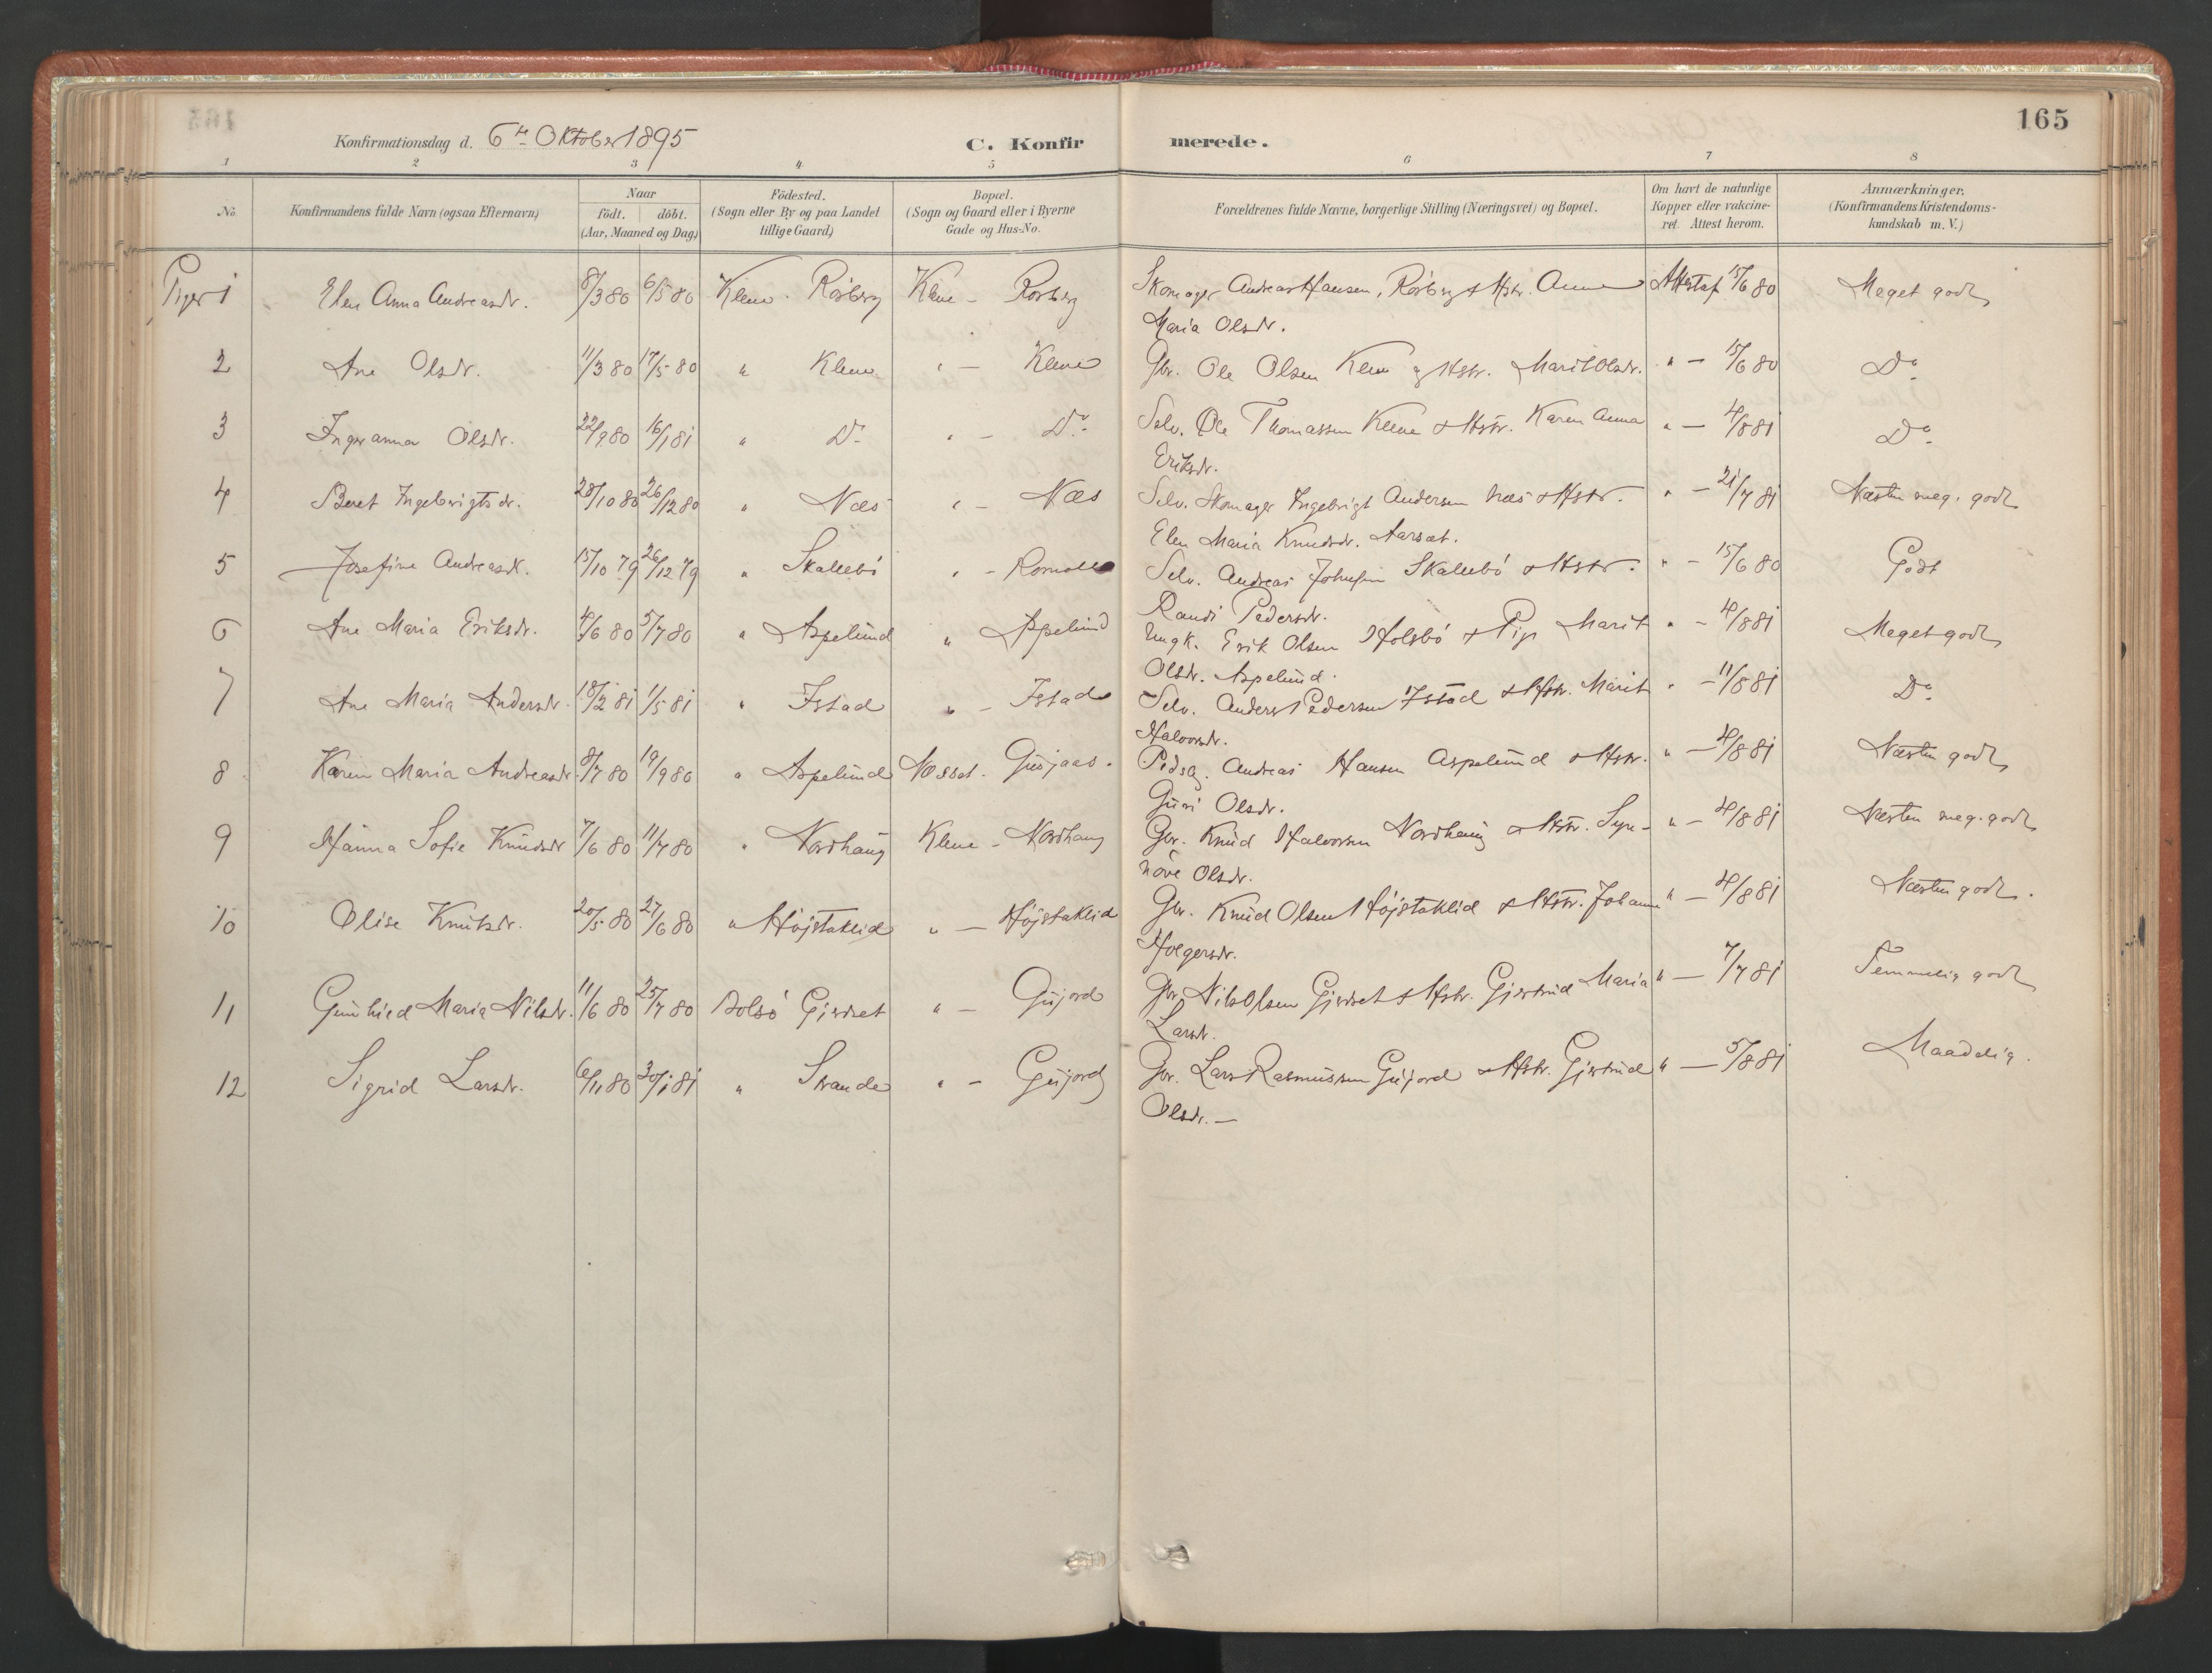 165
Konfirmationsdag d. 6te Oktober 1895
C. Konfirmerede.
1 2 3 4 5 6 7 8
No. Konfirmandens fulde Navn (ogsaa Efternavn) Naar födt. döbt. (Aar, Maaned og Dag) Födested. (Sogn eller By og paa Landet tillige Gaard) Bopæl. (Sogn og Gaard eller i Byerne Gade og Hus-No. Forældrenes fulde Navne, borgerlige Stilling (Næringsvei) og Bopæl. Om havt de naturlige Kopper eller vakcineret. Attest herom. Anmærkninger. (Konfirmandens Kristendomskundskab m. V.)
Piger 1 Elen Anna Andreasdr. 8/3 80 6/5 80 Kleve - Rösberg Kleve - Rösberg Skomager Andreas Hansen, Rösberg & Hstr. Anne Attest af 15/6 80 Meget godt
Maria Olsdr.
2 Ane Olsdr. 11/3 80 17/5 80 " Kleve " - Kleve Gbr. Ole Olsen Kleve og Hstr. Marit Olsdr. " - 15/6 80 Do
3 Inger anna Olsdr. 22/9 80 16/1 81 " Do " - Do Selv. Ole Thomassen Kleve & Hstr. Karen Anna " - 4/8 81 Do
Eriksdr.
4 Beret Ingebrigtsdr. 28/10 80 26/12 80 " Næs " - Næs Selv. Skomager Ingebrigt Andersen Næs & Hstr. " - 21/7 81 Næsten meg. godt
Elen Maria Knudsdr. Aarsæt.
5 Josefine Andreasdr. 15/10 79 26/12 79 " Skallebö " - Selv. Andreas Johnsen Skallebö & Hstr. " - 15/6 80 Godt
Randi Pedersdr.
6 Ane Maria Eriksdr. 4/6 80 5/7 80 " Aspelund " Aspelund Ungk. Erik Olsen Holsbö & Pige Marit " - 4/8 81 Meget godt
Olsdr. Aspelund.
7 Ane Maria Andersdr. 18/2 81 1/5 81 " Istad " - Istad Selv. Anders Pedersen Istad & Hstr. Marit " - 11/8 81 Do
Halvorsdr.
8 Karen Maria Andreasdr. 8/7 80 19/9 80 " Aspelund Nesset. Gusjaas. Pldsg. Andreas Hansen Aspelund & Hstr. " - 4/8 81 Næsten godt
Guri Olsdr.
9 Hanna Sofie Knudsdr 7/6 80 11/7 80 " Nordhaug Kleve - Nordhaug Gbr. Knud Halvorsen Nordhaug & Hstr. Syn- " - 4/8 81 Næsten meg. godt
növe Olsdr.
10 Olise Knutsdr. 20/5 80 27/6 80 " Höjstaklid " - Höjstaklid Gbr. Knud Olsen Höjstaklid & Hstr. Johanne " - 4/8 81 Næsten godt.
Holgersdr.
11 Gunhild Maria Nilsdr. 11/6 80 25/7 80 Bolsö Gjerdset " - Gujord Gbr. Nils Olsen Gjerdset & Hstr. Gjertrud Maria " - 7/7 81 Temmelig godt
Larsdr.
12 Sigrid Larsdr. 6/11 80 30/1 81 " Strande " - Gujord Gbr. Lars Rasmussen Gujord & Hstr. Gjertrud " - 5/8 81 Maadelig.
Olsdr. -